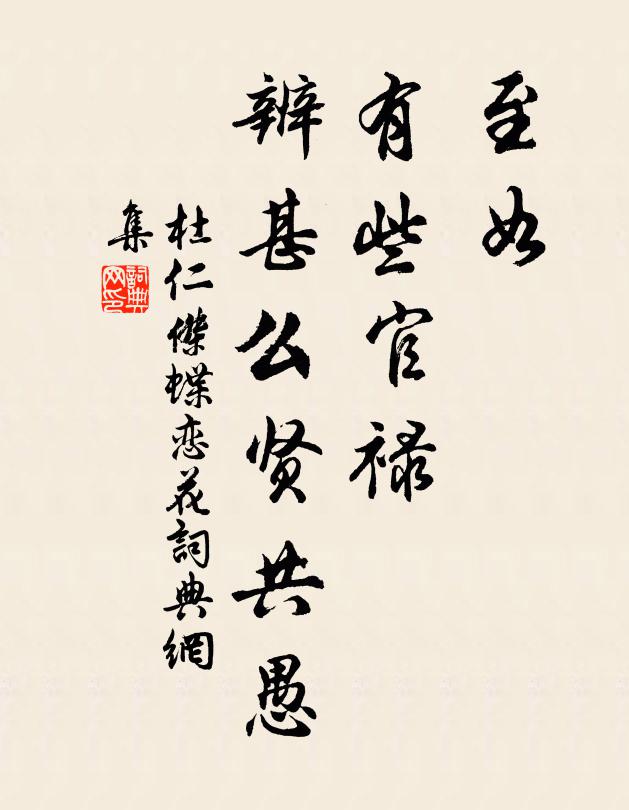 至如
有些官禄
辨甚么贤共愚
杜仁傑蝶恋花詞典網
集
詞典
网印